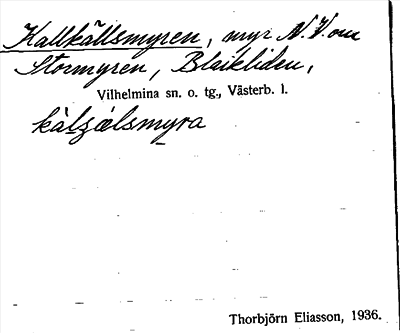 Kallkällsmyren, myr N.V. om
Stormyren, Blaikliden,
Vilhelmina sn. o. tg., Västerb. l.
kàlʒælsmyra
Thorbjörn Eliasson, 1936.